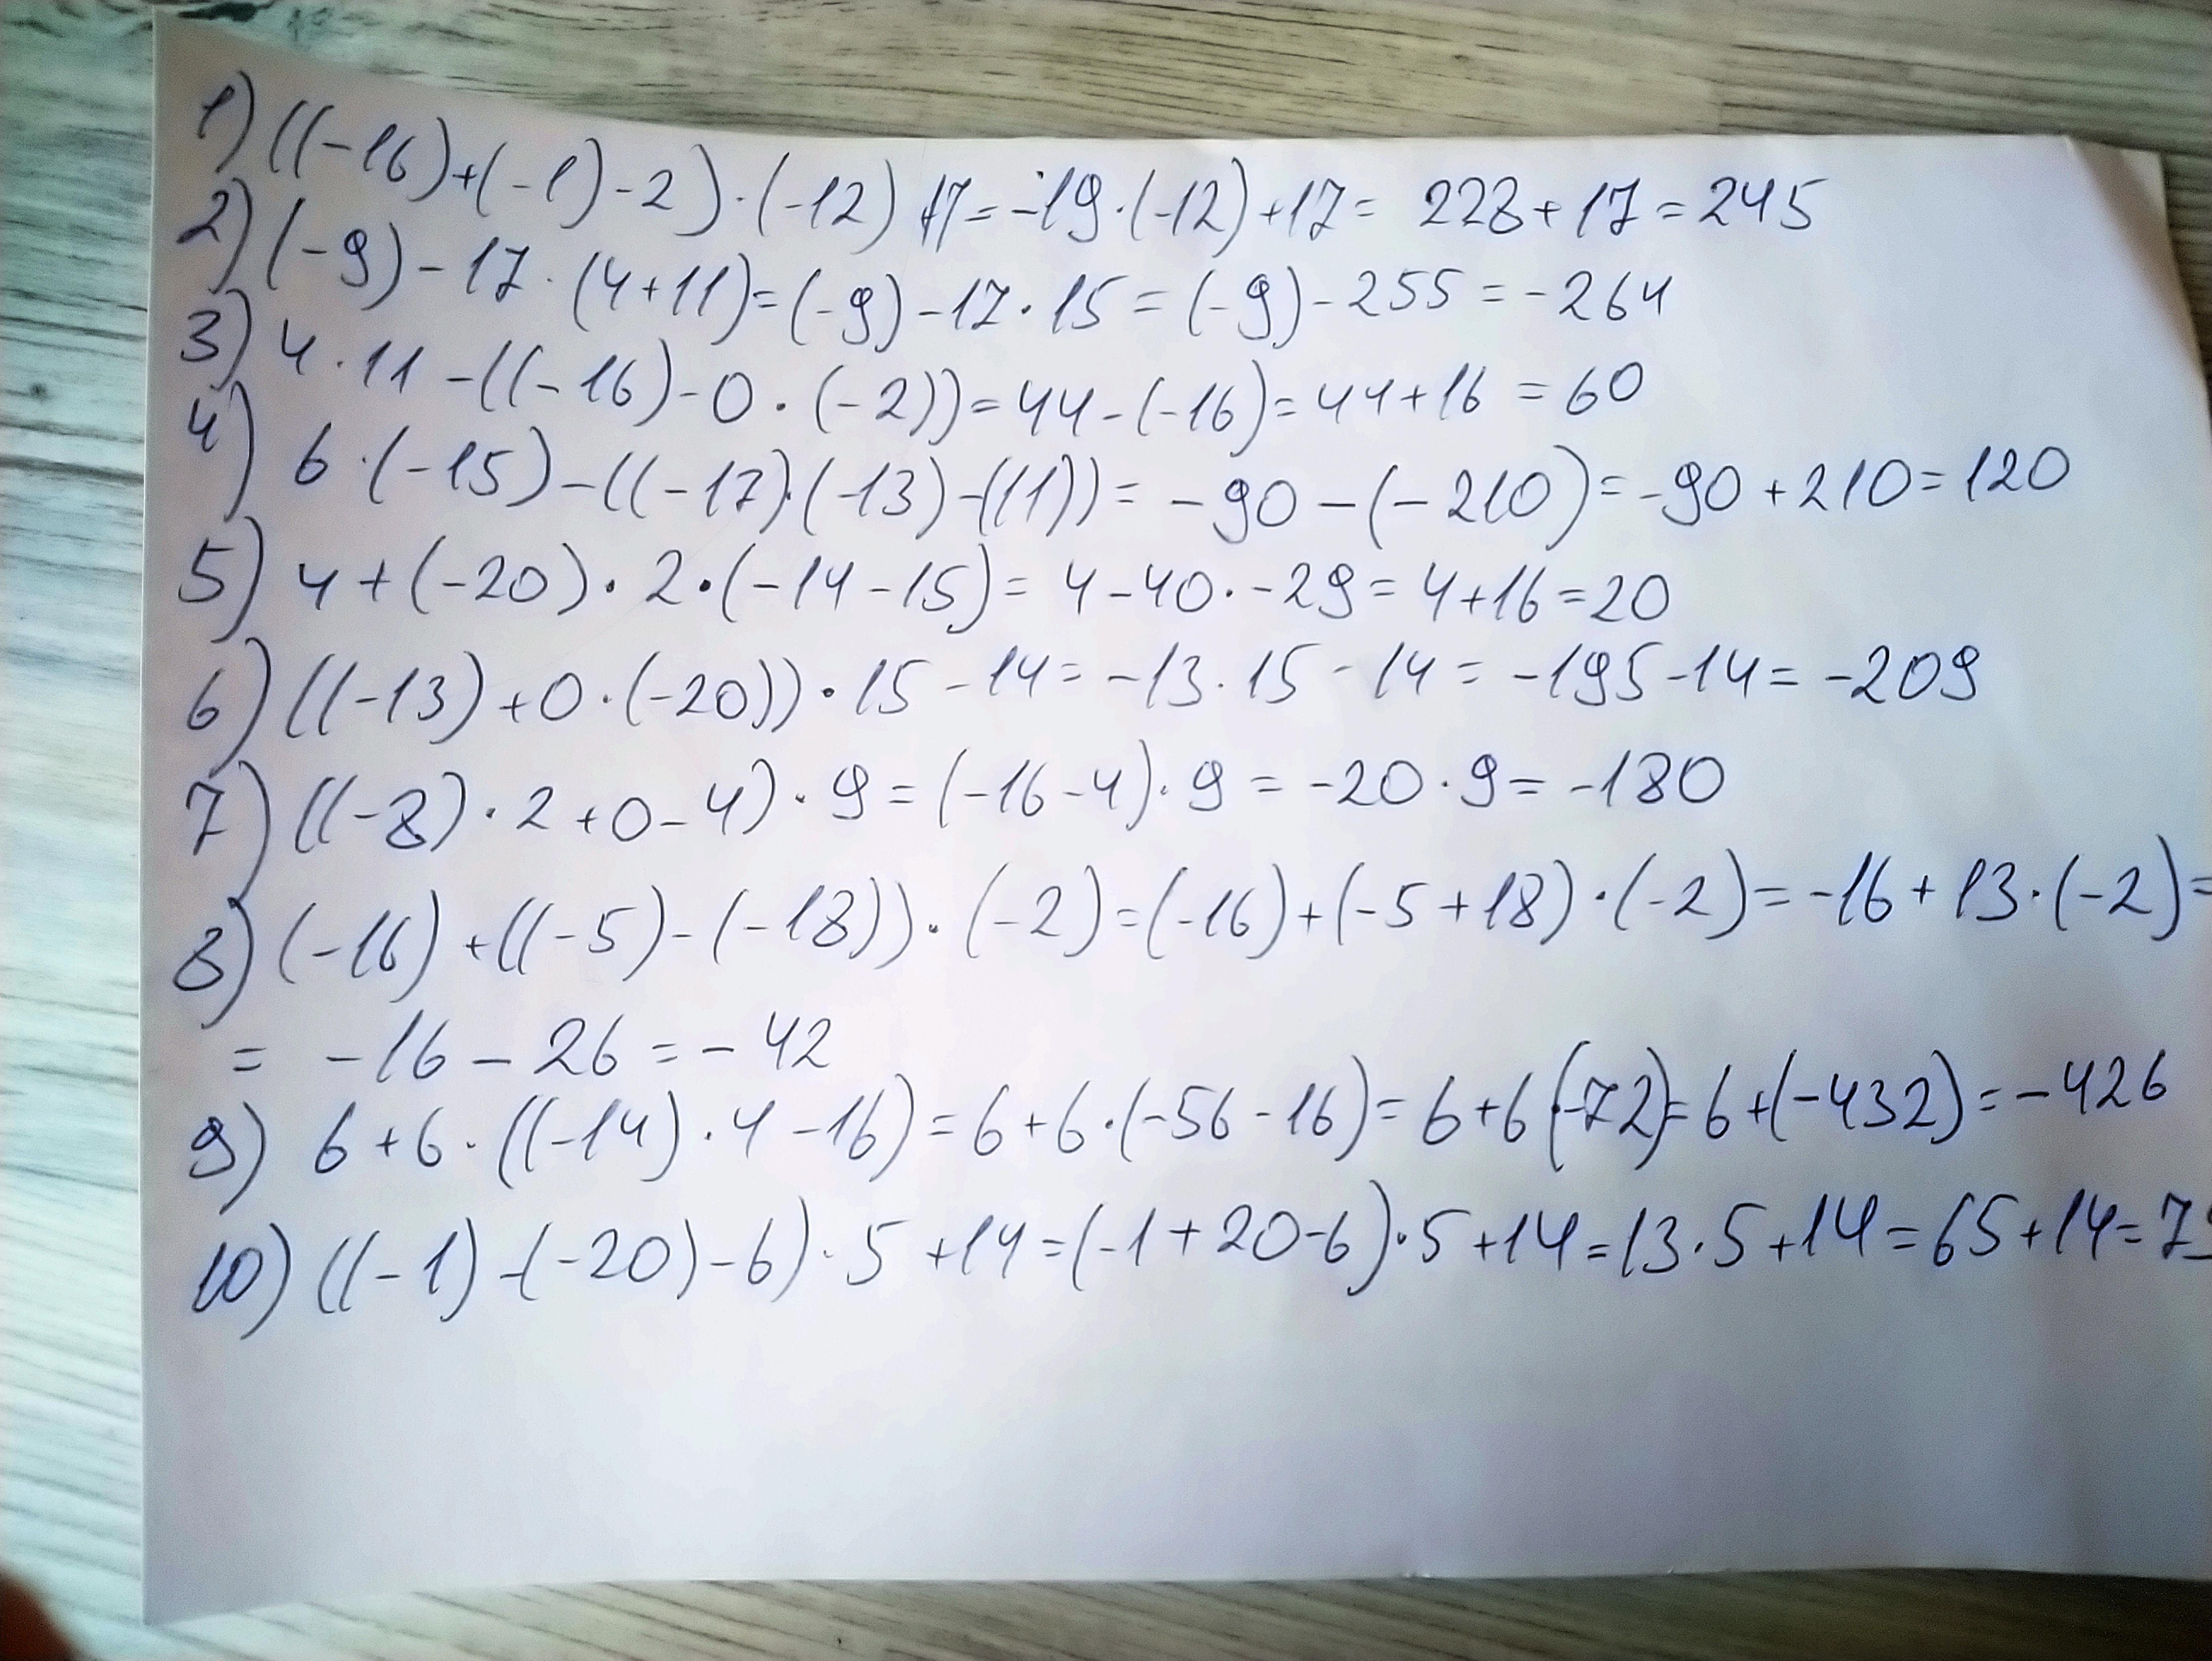 1) ((-16)+(-1)-2)·(-12)+17=-19·(-12)+17= 228+17=245
2) (-9)-17·(4+11)=(-9)-17·15=(-9)-255=-264
3) 4·11-((-16)-0·(-2))=44-(-16)=44+16=60
4) 6·(-15)-((-17)·(-13)-(11))=-90-(-210)=-90+210=120
5) 4+(-20)·2·(-14-15)=4-40·-29=4+16=20
6) ((-13)+0·(-20))·15-14=-13·15-14=-195-14=-209
7) ((-8)·2+0-4)·9=(-16-4)·9=-20·9=-180
8) (-16)+((-5)-(-18))·(-2)=(-16)+(-5+18)·(-2)=-16+13·(-2)=
= -16-26=-42
9) 6+6·((-14)·4-16)=6+6·(-56-16)=6+6·(-72)=6+(-432)=-426
10) ((-1)-(-20)-6)·5+14=(-1+20-6)·5+14=13·5+14=65+14=79